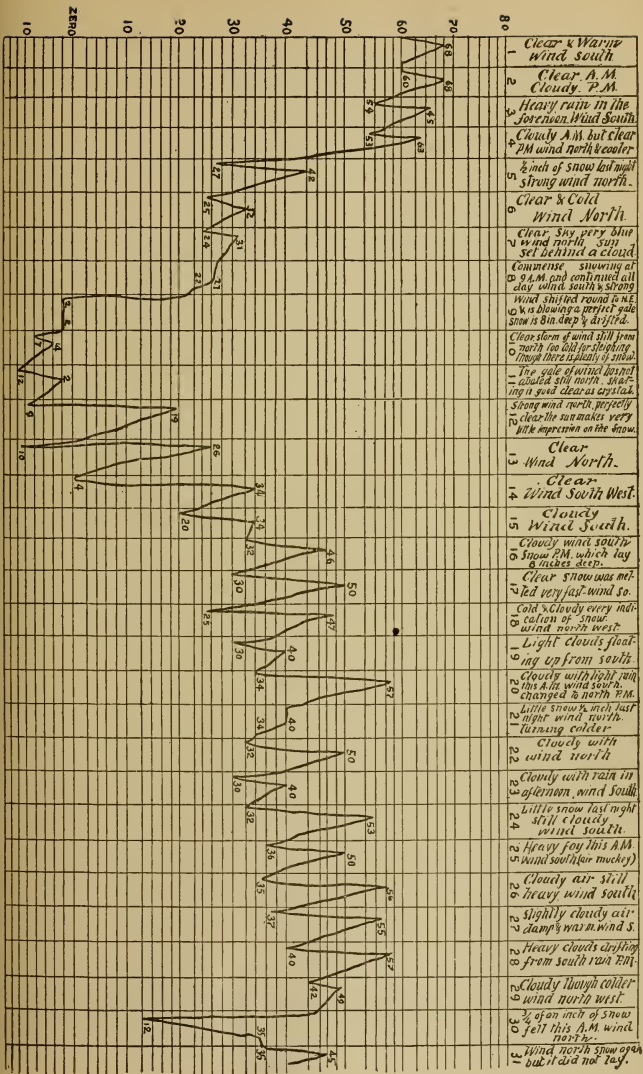 10 ZERO 10 20 30 40 50 60 70 80
68
1
Clear & Warm
Wind south
60 68
2
Clear. A.M.
Cloudy. P.M.
54 45
3
Heavy rain in the
forenoon. Wind South.
53 63
4
Cloudy A.M. but clear
PM wind north & cooler
27 42
5
½ inch of snow last night
strong wind north.
25 32
6
Clear & Cold
Wind North.
24 31
7
Clear, Sky very blue
wind north, sun
set behind a cloud.
22 27
8
Commense snowing at
9 A.M. and continued all
day wind south & strong
9
Wind shifted round to N.E.
& is blowing a perfect gale
snow is 8 in. deep & drifted.
7 4
10
Clear storm of wind still from
north too cold for sleighing
though there is planty of snow.
12 2
11
The gale of wind has not
abated still north. skat-
ing is good clear as crystal.
9 19
12
Strong wind north, perfectly
clear the sun makes very
little impression on the snow.
10 26
13
Clear
Wind North.
4 34
14
Clear
Wind South West.
20 34
15
Cloudy
Wind South.
32 46
16
Cloudy wind south
Snow P.M. which lay
8 inches deep.
30 50
17
Clear snow was mel-
ted very fast - wind so.
25 47
18
Cold & Cloudy every indi-
cation of snow.
wind north west.
30 40
19
Light clouds float-
ing up from south.
34 57
20
Cloudy with light rain
this A.M. wind south.
changed to north P.M.
34 40
21
Little snow ½ inch last
night wind north.
turning colder
32 50
22
Cloudy with
wind north
30 40
23
Cloudy with rain in
afternoon, wind South
32 53
24
Little snow last night
still cloudy
wind south.
36 50
25
Heavy foy this A.M.
Wind south (air muckey)
35 56
26
Cloudy air still
heavy wind south
37 55
27
Slightly cloudy air
damp & warm. wind S.
40 57
28
Heavy clouds drifting
from south rain P.M.
42 49
29
Cloudy though colder
wind north west.
12 35
30
¾ of an inch of snow
fell this A.M. wind
north.
35 45
31
Wind north snow again
but it did not lay.